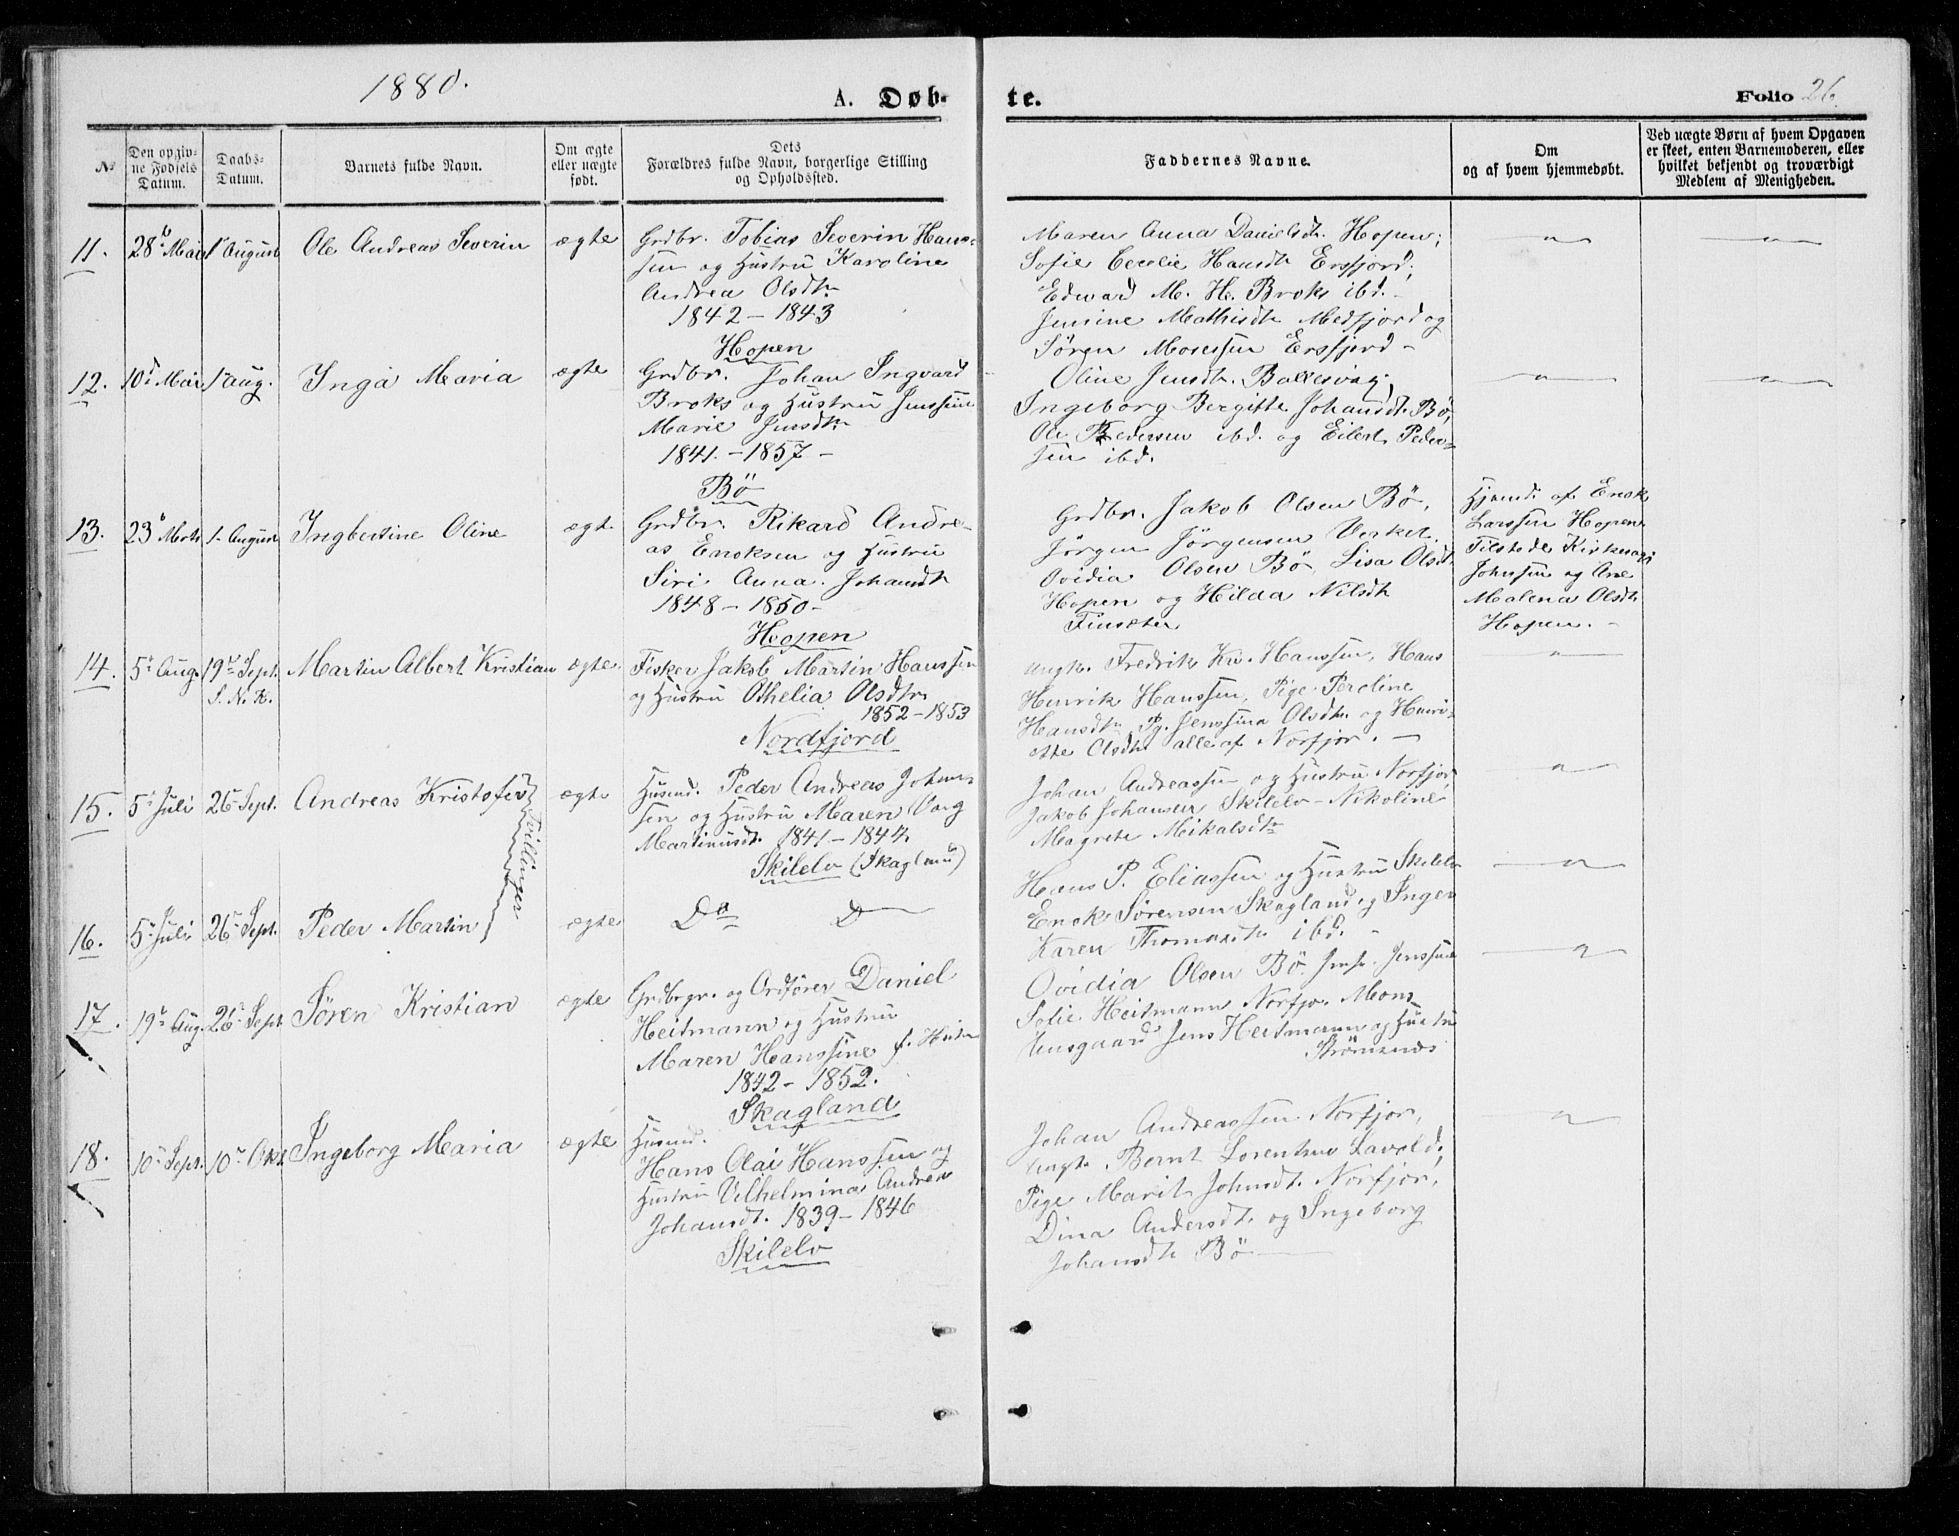 1880.
A. Døb-
te.
Folio 26.
№
Den opgivne Fødsels Datum.
Daabs-Datum.
Barnets fulde Navn.
Om ægte eller uægte født.
Dets Forældres fulde Navn, borgerlige Stilling og Opholdssted.
Faddernes Navne.
Om og af hvem hjemmedøbt.
Ved uægte Børn af hvem Opgaven er skeet, enten Barnemoderen, eller hvilket bekjendt og troværdigt Medlem af Menigheden.
11. 28 Mai 1 August Ole Andreas Severin ægte
Grdbr. Tobias Severin Hans-
sen og Hustru Karoline
Andrea Olsdtr
1842 – 1843
Hopen
Maren Anna Danielsdt. Hopen;
Sofie Cecelie Hansdt Ersfjord;
Edward M. H. Broks ibd. –
Jensine Mathisdt Medfjord og
Søren Mosessen Ersfjord –
12. 10 Mai 1 aug. Inga Maria ægte
Grdbr. Johan Ingvard
Broks og Hustru Jenssine
Marie Jensdtr
1841. – 1857 –
Bö
Oline Jensdt. Ballesvag;
Ingeborg Bergitte Johansdt. Bö,
Ole Pedersen ibd. og Eilert Peder-
sen ibd.
13. 23 Marts 1. August Ingbertine Oline ægte
Grdbr. Rikard Andre-
as Enoksen og Hustru
Siri Anna Johansdt
1848 – 1850 –
Hopen
Grdbr. Jakob Olsen Bö,
Jörgen Jörgensen
Ovidia Olsen Bö, Lisa Olsdt
Hopen og Hilda Nilsdt
Finsæter
Hjemd. af Enok
Larssen Hopen
Tilstede
Johnsen og Ane
Malena Olsdt
Hopen. –
14. 5 Aug. 19 Sept. Martin Albert Kristian ægte
S. N. K.
Fisker Jakob Martin Hanssen
og Hustru Othelia Olsdtr
1852 – 1853
Nordfjord
Ungk. Fredrik Kr. Hanssen, Hans
Henrik Hanssen, Pige Peroline
Hansdt Pg. Jenssina Olsdt. og Henri-
ette Olsdt alle af Norfjor. –
15. 5 Juli 26 Sept. Andreas Kristofer ægte
Tvillinger
Husmd. Peder Andreas Johan-
sen og Hustru Maren
Martinusdt. 1841 – 1844
Skilelv (Skagland)
Johan Andreassen og Hustru Norfjor
Jakob Johansen Skilelv – Nikoline
Magrete Mikalsdtr
16. 5 Juli 26 Sept. Peder Martin ægte
Do D
Hans P. Eliassen og Hustru Skilelv
Enok Sörensen Skagland og Inger
Karen Thomasdt ibd. –
17. 19 Aug. 26 Sept Sören Kristian ægte
Grdbrgr. og Ordfører Daniel
Heitmann og Hustru
Maren Hanssine f.
1842 – 1852.
Skagland
Ovidia Olsen Bö Jomf. Jenssine
Sofie Heitmann Norfjor
Jens Heitmann og Hustru
Strömsnes
18. 10 Sept. 10 Okt. Ingeborg Maria ægte
Husmd.
Hans Olai Hanssen og
Hustru Vilhelmina Andrea
Johansdt. 1839 – 1846
Skilelv
Johan Andreassen Norfjor,
Ungk. Bernt Lorentsen Lavold;
Pige Marit Johnsdt. Norfjor,
Dina Andersdt. og Ingeborg
Johansdt Bö